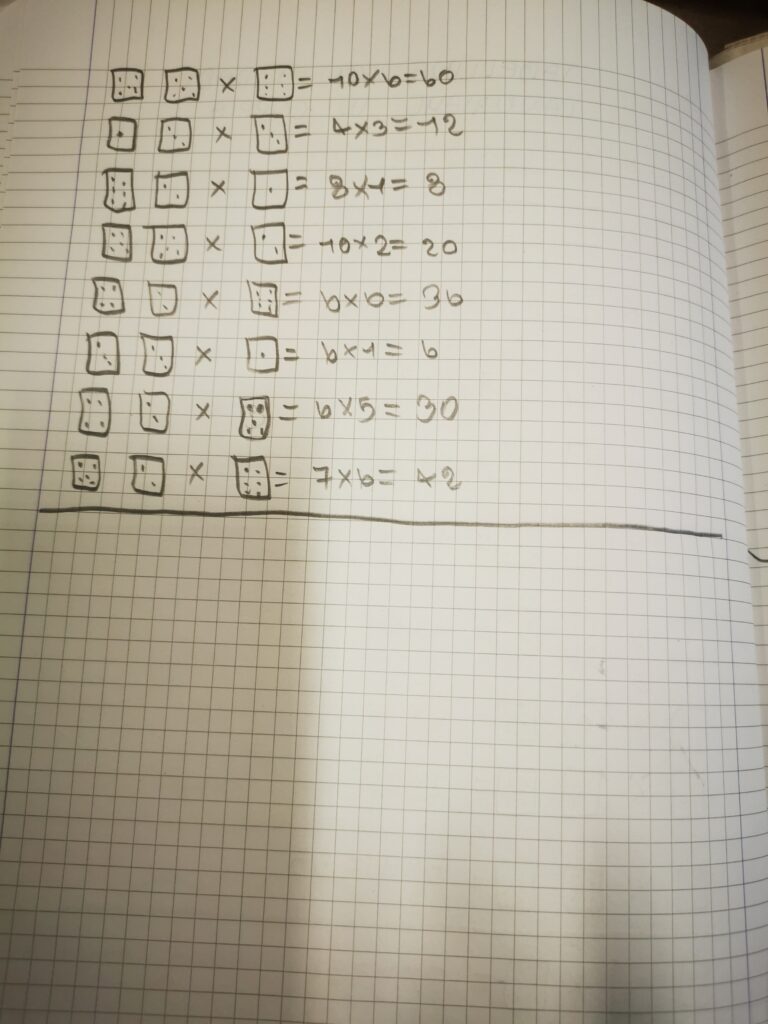 ⚄ ⚄ × ⚅ = 10×6=60
⚀ ⚂ × ⚂ = 4×3=12
⚅ ⚁ × ⚀ = 8×1= 8
⚄ ⚄ × ⚁ = 10×2= 20
⚃ ⚁ × ⚅ = 6×6= 36
⚂ ⚂ × ⚀ = 6×1= 6
⚃ ⚁ × ⚄ = 6×5= 30
⚄ ⚁ × ⚅ = 7×6= 42